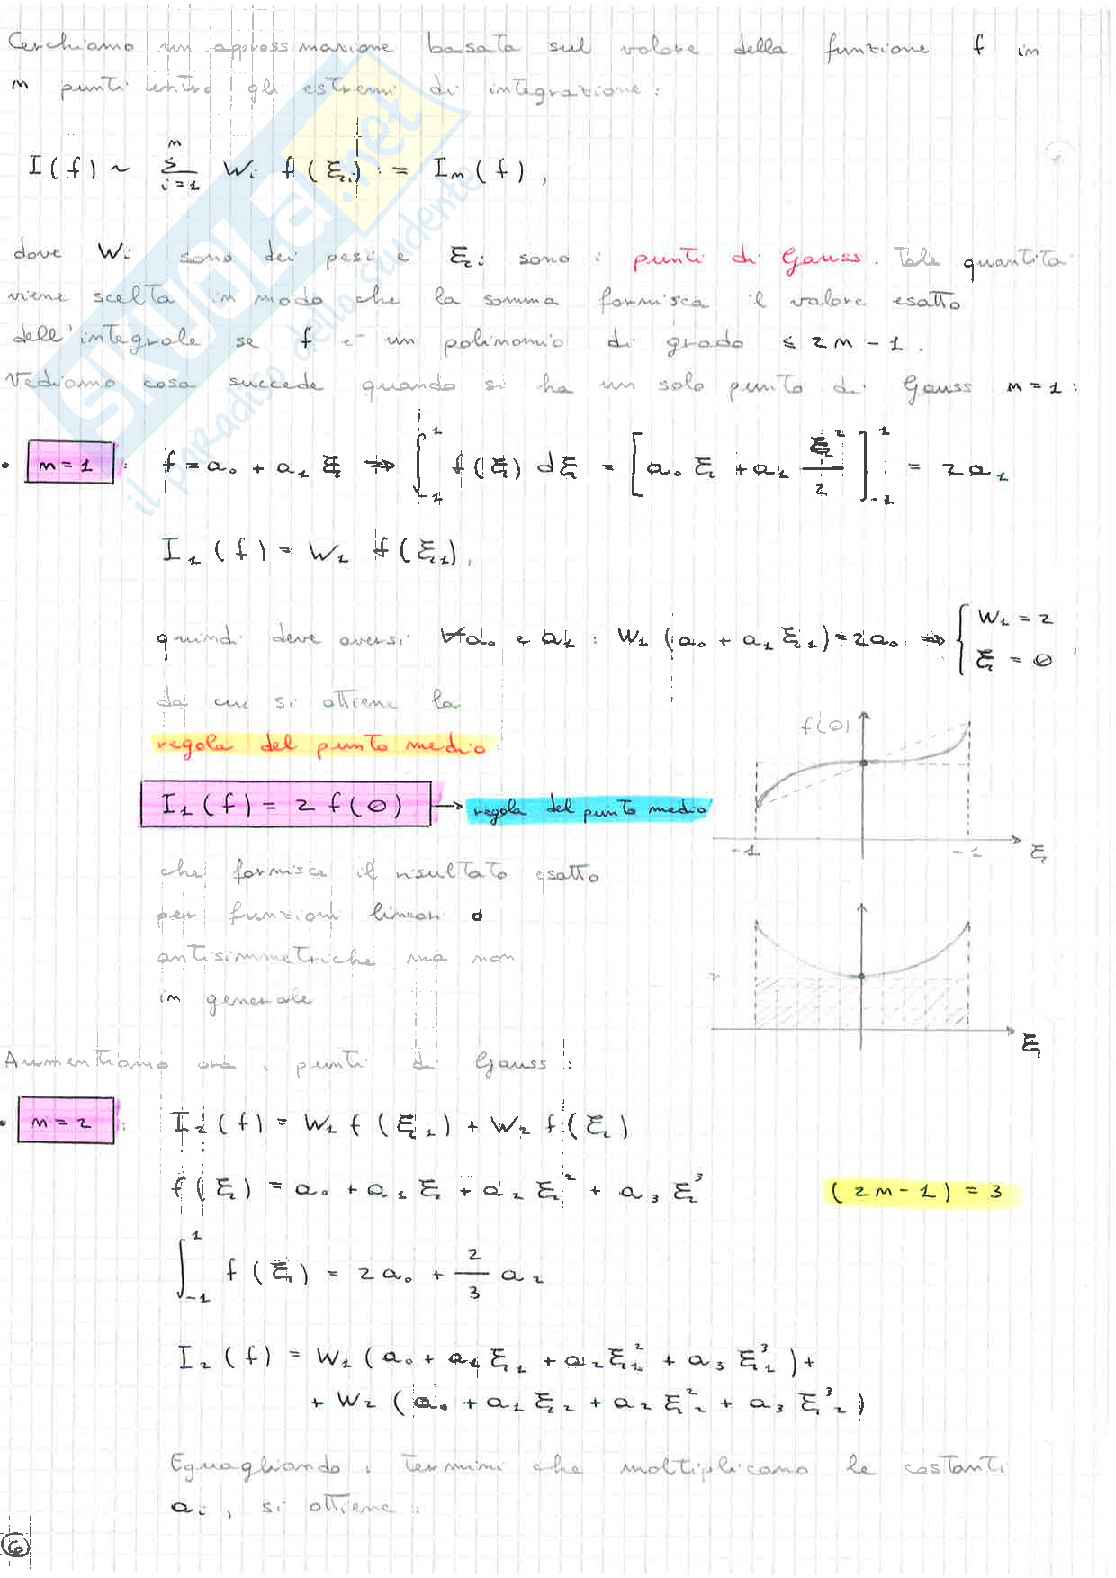 Cerchiamo un approssimazione basata sul valore della funzione f in
n punti entro gli estremi di integrazione:
I(f) ~ Σ_{i=1}^{n} Wi f(ξi) := In(f),
dove Wi sono dei pesi e ξi sono i punti di Gauss. Tale quantità
viene scelta in modo che la somma fornisca il valore esatto
dell'integrale se f è un polinomio di grado ≤ 2n-1.
Vediamo cosa succede quando si ha un solo punto di Gauss n=1:
• n=1 : f = a₀ + a₁ ξ → ∫_{-1}^{1} f(ξ) dξ = [a₀ ξ + a₁ ξ²/2]_{-1}^{1} = 2a₁
I₁(f) = W₁ f(ξ₁),
quindi deve aversi ∀a₀ e a₁ : W₁ (a₀ + a₁ ξ₁) = 2a₀ ⇒ { W₁ = 2
ξ = 0
da cui si ottiene la
regola del punto medio
I₁(f) = 2 f(0) → regola del punto medio
che fornisce il risultato esatto
per funzioni lineari o
antisimmetriche ma non
in generale
f(0)
-1 -1 ξ
ξ
Aumentiamo ora i punti di Gauss:
• n=2 : I₂(f) = W₁ f(ξ₁) + W₂ f(ξ₂)
f(ξ) = a₀ + a₁ ξ + a₂ ξ² + a₃ ξ³ (2n-1) = 3
∫_{-1}^{1} f(ξ) = 2a₀ + 2/3 a₂
I₂(f) = W₁ (a₀ + a₁ ξ₁ + a₂ ξ₁² + a₃ ξ₁³) +
+ W₂ (a₀ + a₁ ξ₂ + a₂ ξ₂² + a₃ ξ₂³)
Eguagliando i termini che moltiplicano le costanti
ai, si ottiene:
6
SKUOLA.net
il paradiso dello studente